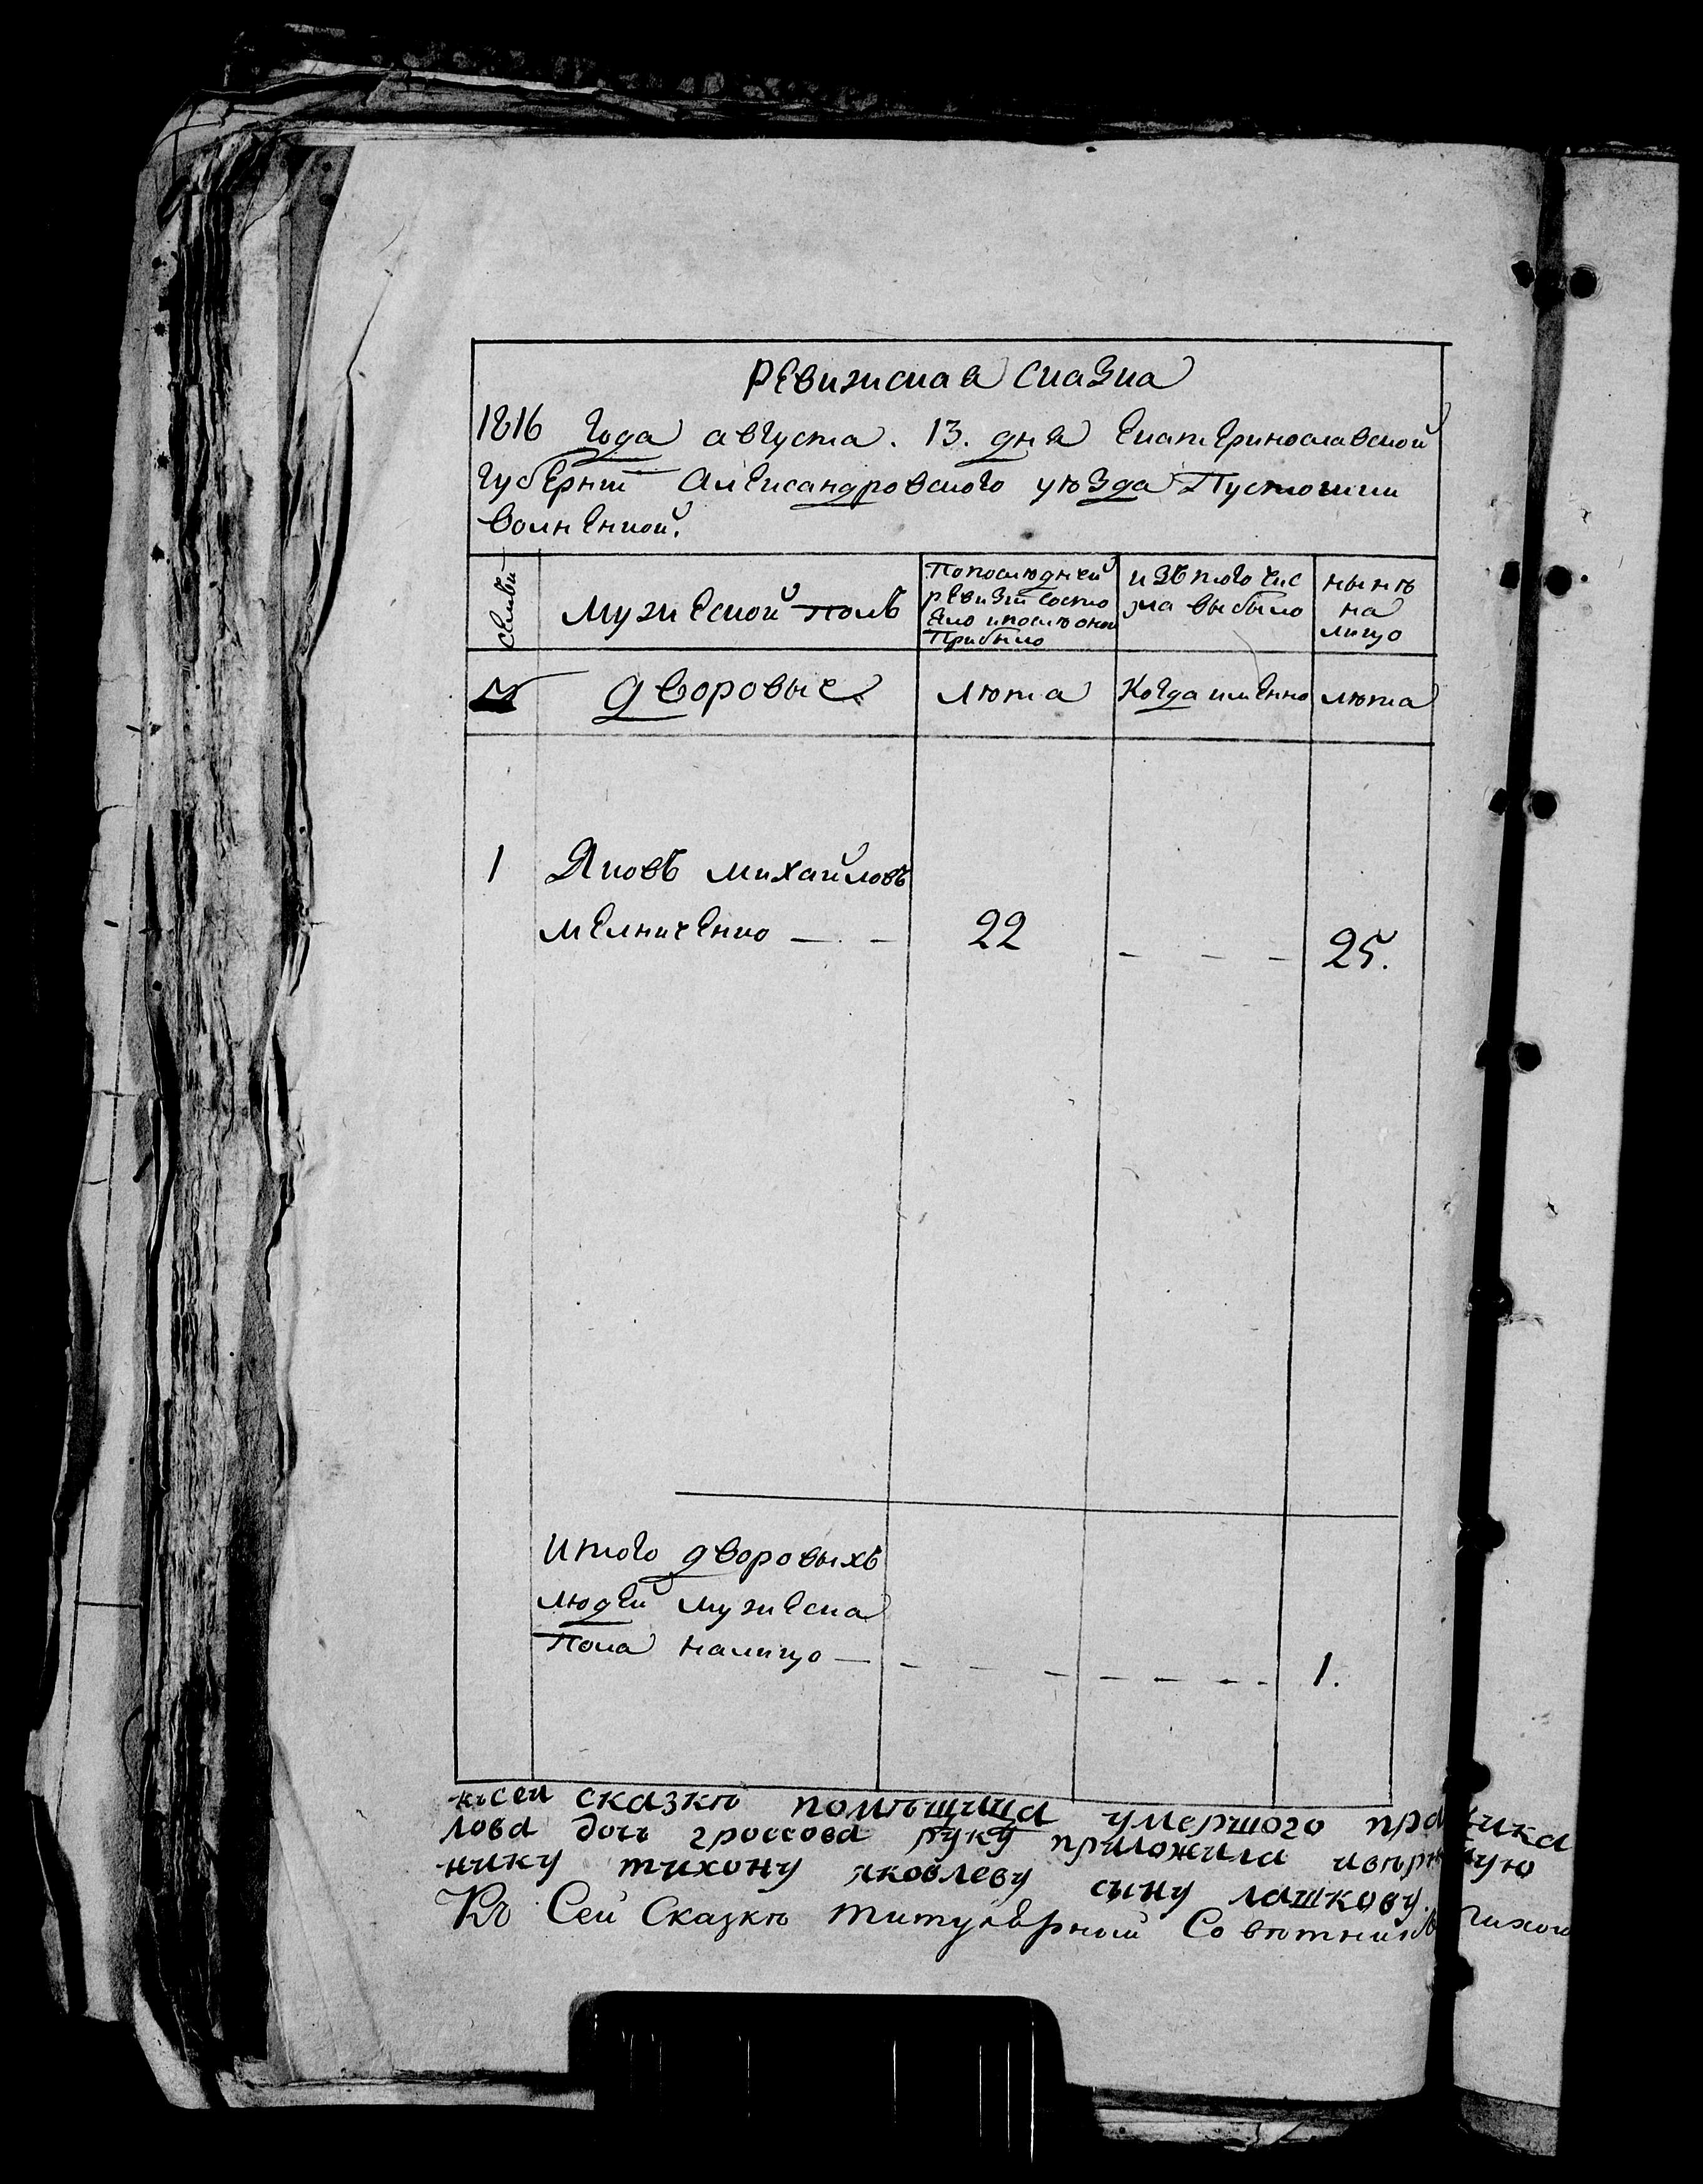 Ревижская сказка
1816 года августа. 13. дня Екатеринославской
губернїи Александровского уѣзда Пустошки
Семьи
мужеской полъ
По последней
ревизїи состо
яло и после оной
Прибыло
изъ того чис
ла выбыло
нынѣ
на
лицо
дворовые
лѣта
Когда именно
лѣта
1
Яковъ михайловъ
мелниченко — - —
22
- - -
25.
Итого дворовыхъ
людей мужеска
Пола налицо — - - - - - - -
1.
къ сей сказкѣ помѣщица умершого пра
лова дочь гроссова руку приложила
нику тихону яковлеву сыну лашкову.
Къ Сей Сказкѣ титулярной Совѣтникъ Тихон